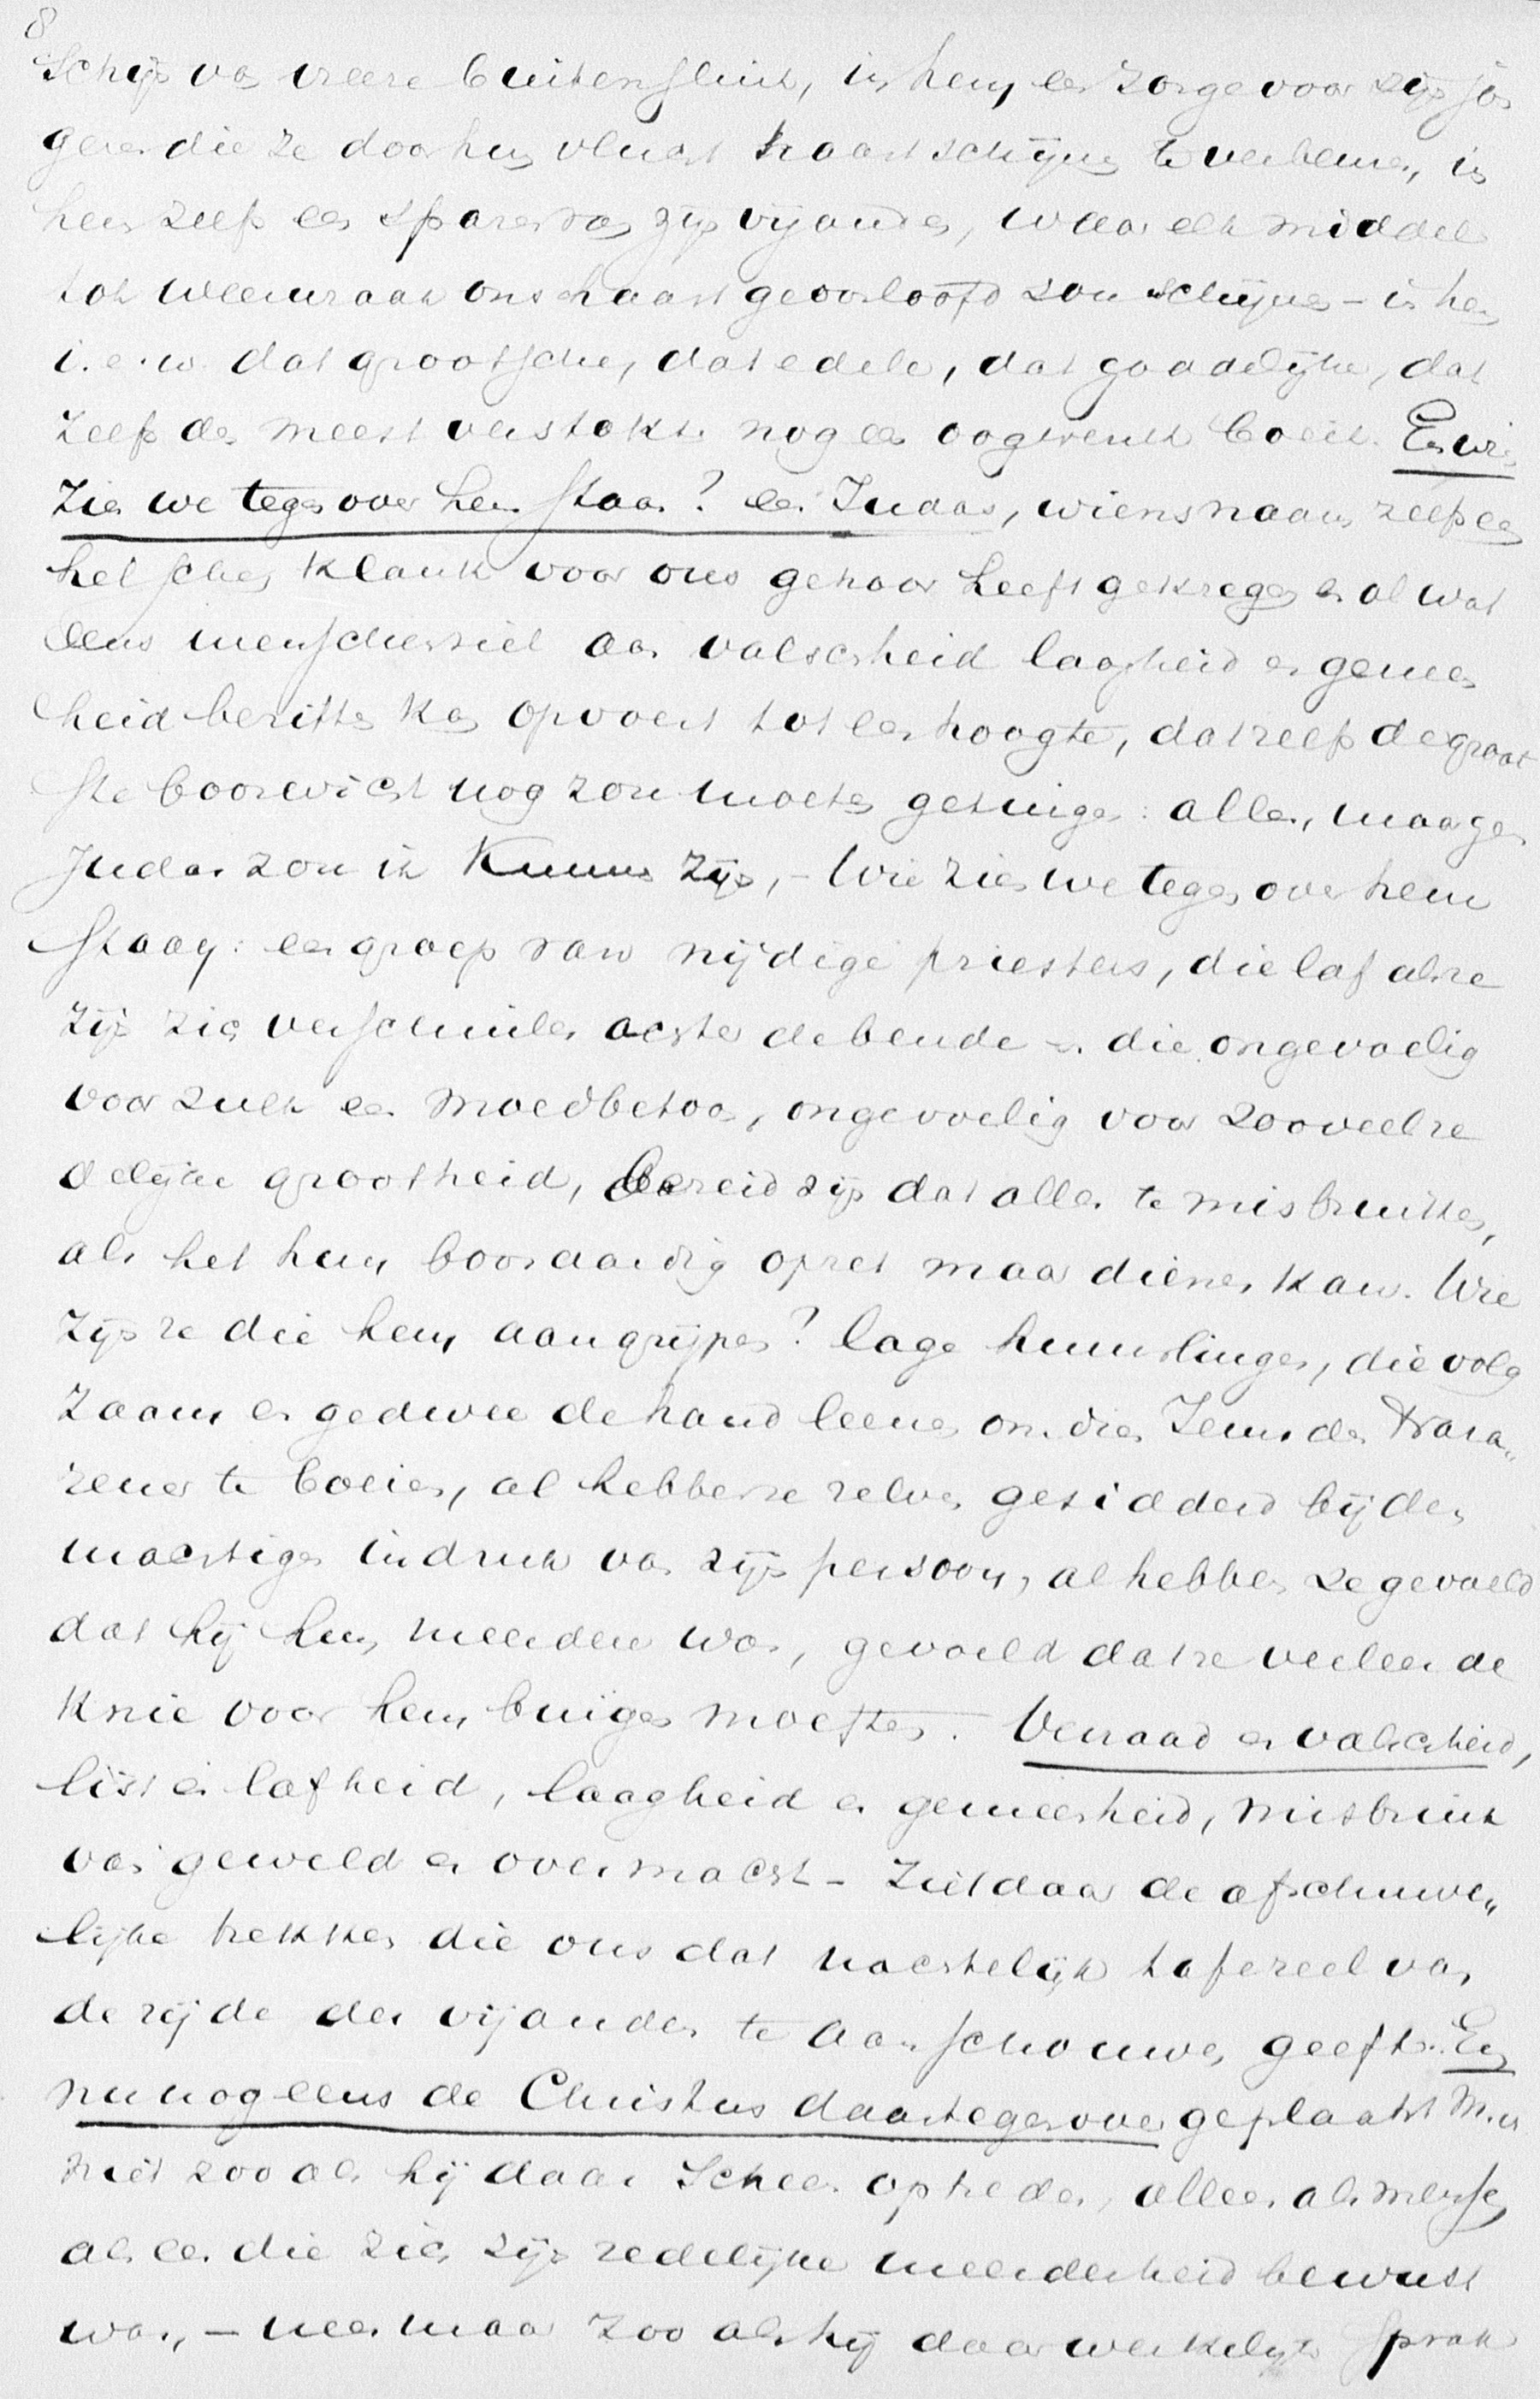 8
schijn van vreese buitensluit, in hem een zorge voor zijn jon
geren die ze door hun vlucht haast schijnen te verbeuren, in
hem zelfs een sparen van zijn vijanden, waar elk middel
tot weerwraak ons haast geoorloofd zou schijnen - in hem
i. e. w. dat grootsche, dat edele, dat goddelijke, dat
zelfs den meest verstokte nog een oogwenk boeit. En wie
zien we tegenover hem staan? een Judas, wiens naam zelfs een
helschen klank voor ons gehoor heeft gekregen en al wat
eens menschenziel aan valscheid laagheid en gemeen
heid bezitten kan opvoert tot een hoogte, dat zelfs de groot
ste booswicht nog zou moeten getuigen: alles, maar geen
Judas zou ik kunnen zijn, - Wie zien we tegenover hem
staan: een groep van nijdige priesters, die laf als ze
zijn zich verschuilen achter de bende en die ongevoelig
voor zulk een moedbetoon, ongevoelig voor zooveel ze
delijke grootheid, bereid zijn dat alles te misbruiken,
als het hun boosaardig opzet maar dienen kan. Wie
zijn ze die hem aangrijpen? lage huurlingen, die volg
zaam en gedwee de hand leenen om dien Jezus den Naza„
rener te boeien, al hebben ze zelven gesidderd bij den
machtigen indruk van zijn persoon, al hebben ze gevoeld
dat hij hun meerdere was, gevoeld dat ze veeleer de
knie voor hem buigen moesten. Verraad en valscheid,
list en lafheid, laagheid en gemeenheid, misbruik
van geweld en overmacht - Ziet daar de afschuwe„
lijke trekken die ons dat nachtelijk tafereel van
de zijde der vijanden te aanschouwen geeft. En
nu nog eens de Christus daartegenover geplaatst M. h
niet zoo als hij daar scheen op treden, alleen als mensch
als een die zich zijn zedelijke meerderheid bewust
was, - neen maar zoo als hij daar werkelijk sprak